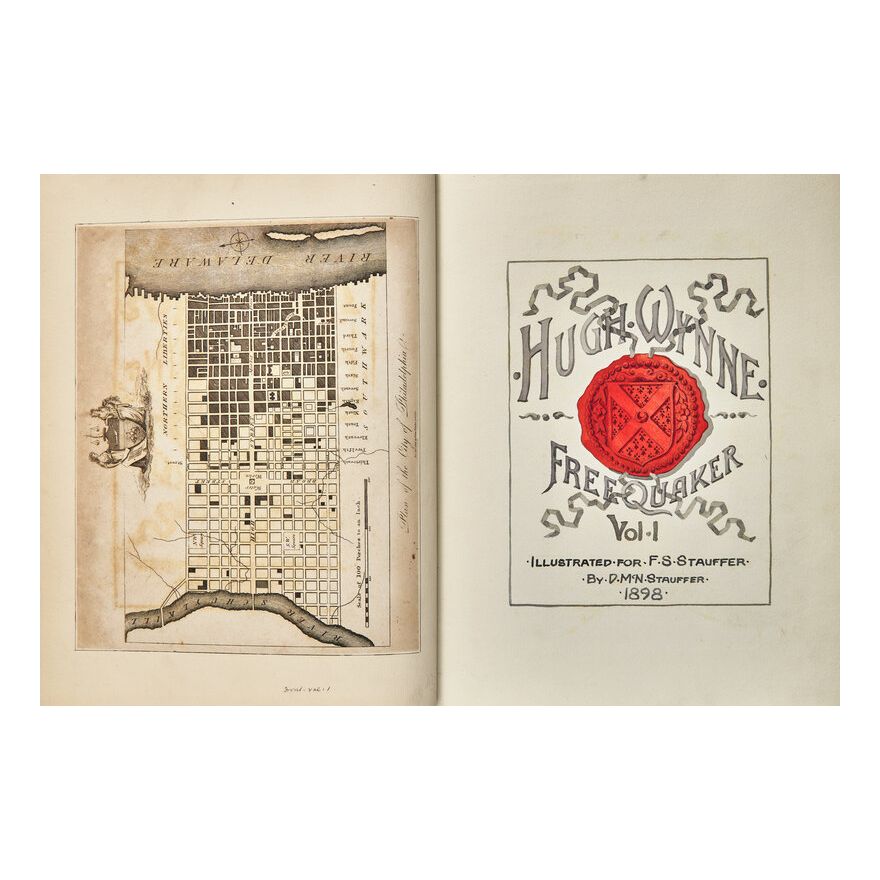 RIVER DELAWARE
NORTHERN LIBERTIES
SOUTHWARK
Front
Second
Third
Fourth
Fifth
Sixth
Seventh
Eighth
Ninth
Tenth
Eleventh
Twelfth
Thirteenth
Street
BROAD STREET
Water
Works
HIGH
N.W
Square
S.W
Square
Scale of 100 Perches to an Inch
Plan of the City of Philadelphia
RIVER SCHUYLKILL
HUGH·WYNNE·
FREE QUAKER
Vol·I
·ILLUSTRATED·FOR·F·S·STAUFFER·
·BY·D·McN·STAUFFER·
·1898·